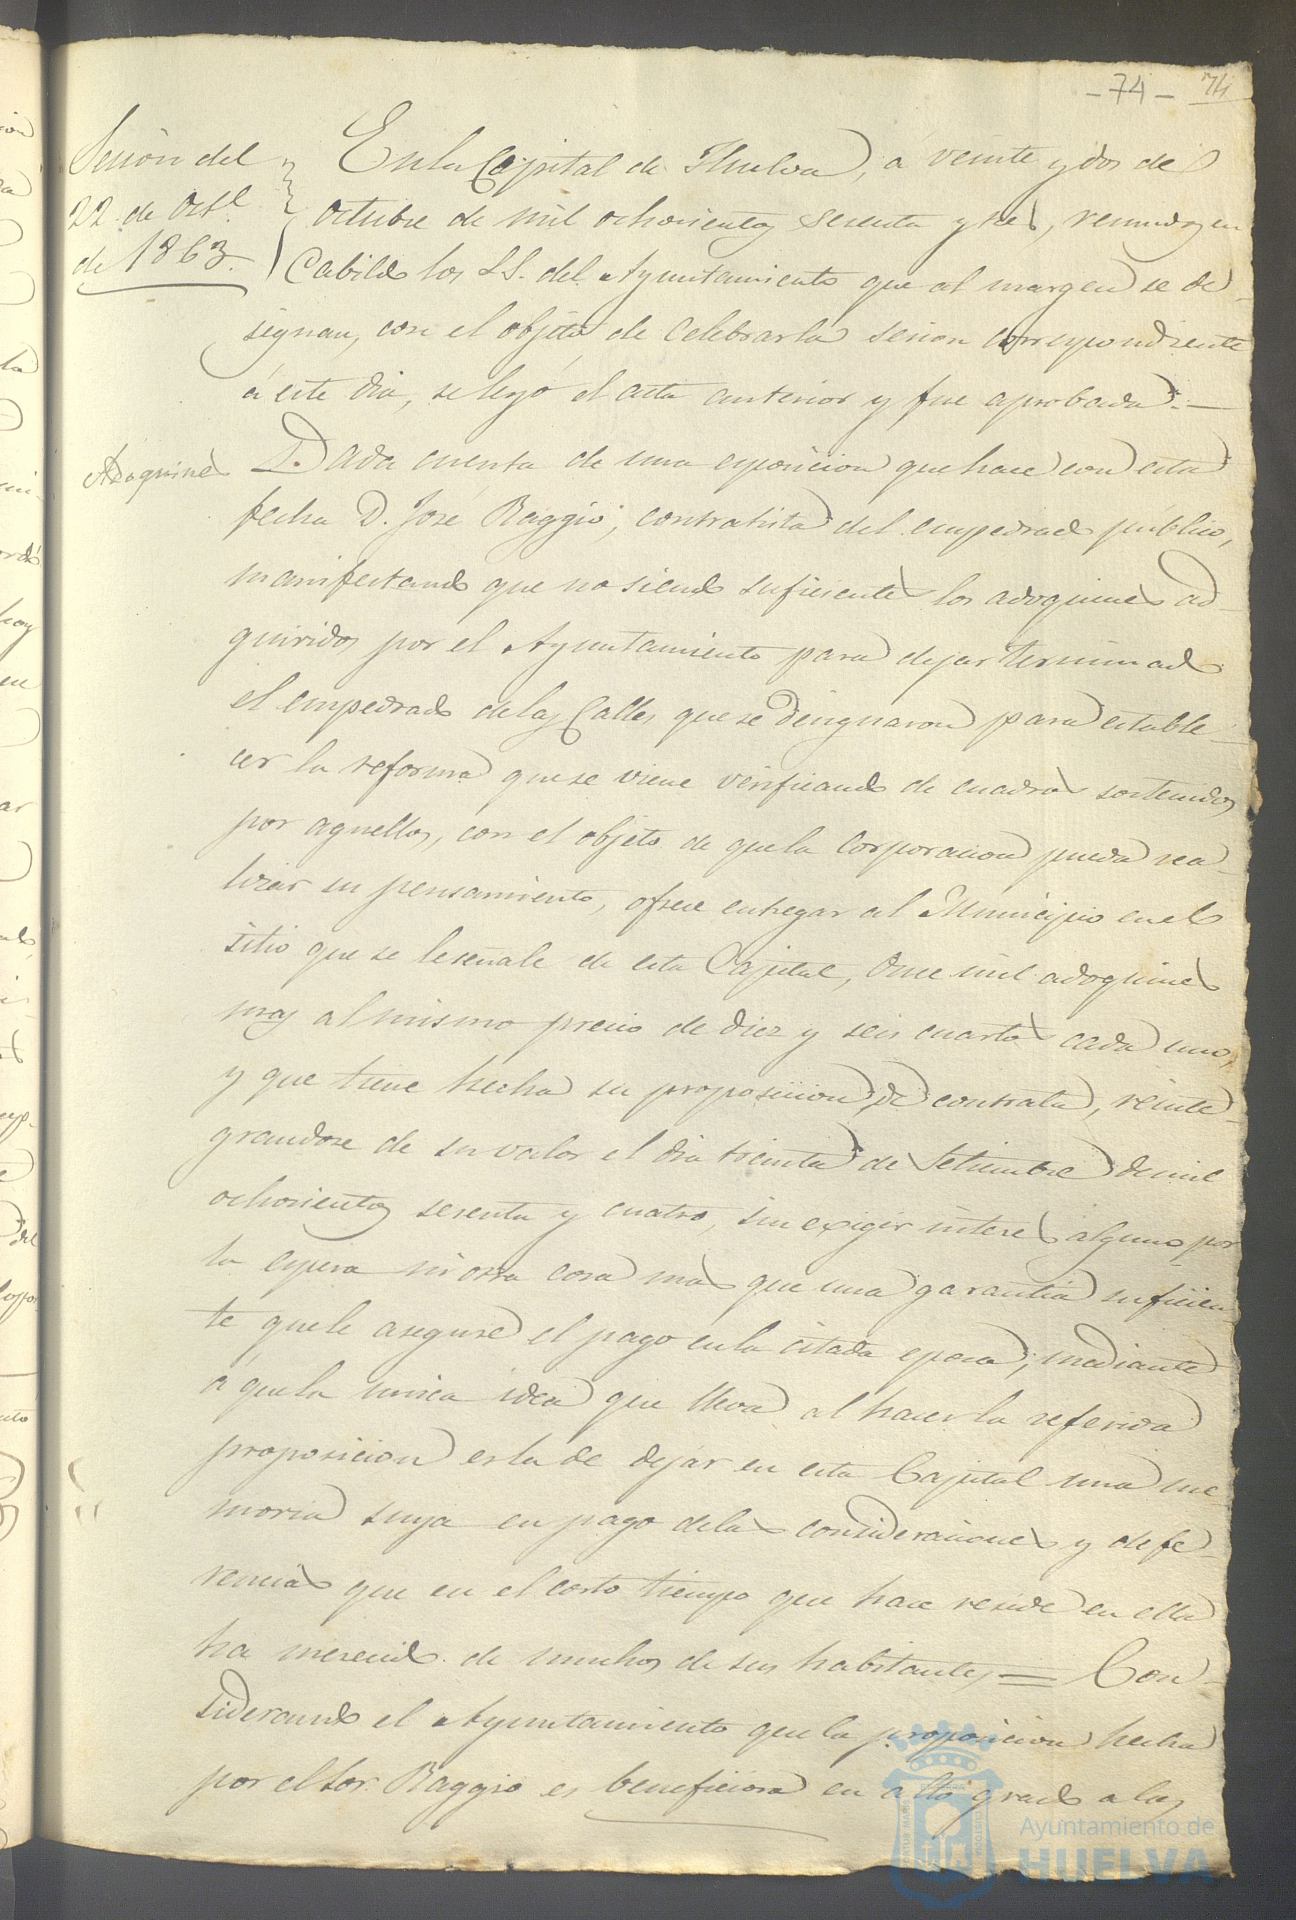 - 74 - 74
Sesion del
22. de Octe.
de 1863.
En la Capital de Huelva, a veinte y dos de
Octubre de mil ochocientos sesenta y tres, reunidos en
Cabildo los S.S. del Ayuntamiento que al margen se de-
signan, con el objeto de celebrar la sesion correspondiente
á este dia, se leyó el acta anterior y fue aprobada.=
Adoquines
Dada cuenta de una esposicion que hace con esta
fecha D. José Baggio, contratista del empedrado público,
manifestando que no siendo suficientes los adoquines ad-
quiridos por el Ayuntamiento para dejar terminado
el empedrado de las Calles que se designaron para estable-
cer la reforma que se viene verificando de cuadros sostenidos
por aquellos, con el objeto de que la Corporacion pueda rea-
lizar su pensamiento, ofrece entregar al Municipio en el
sitio que se le señale de esta Capital, once mil adoquines
mas al mismo precio de diez y seis cuartos cada uno,
y que tiene hecha su proposicion de contrata, reinte-
grandose de su valor el dia treinta de Setiembre de mil
ochocientos sesenta y cuatro, sin exigir interes alguno por
la espera ni otra cosa mas que una garantia suficien-
te que le asegure el pago en la citada epoca, mediante
á que la unica idea que lleva al hacer la referida
proposicion es la de dejar en esta Capital una me-
moria suya en pago de las consideraciones y defe-
rencias que en el corto tiempo que hace reside en ella
ha merecido de muchos de sus habitantes = Con-
siderando el Ayuntamiento que la proposicion hecha
por el Sor. Baggio es beneficiosa en alto grado a los
Ayuntamiento de
HUELVA